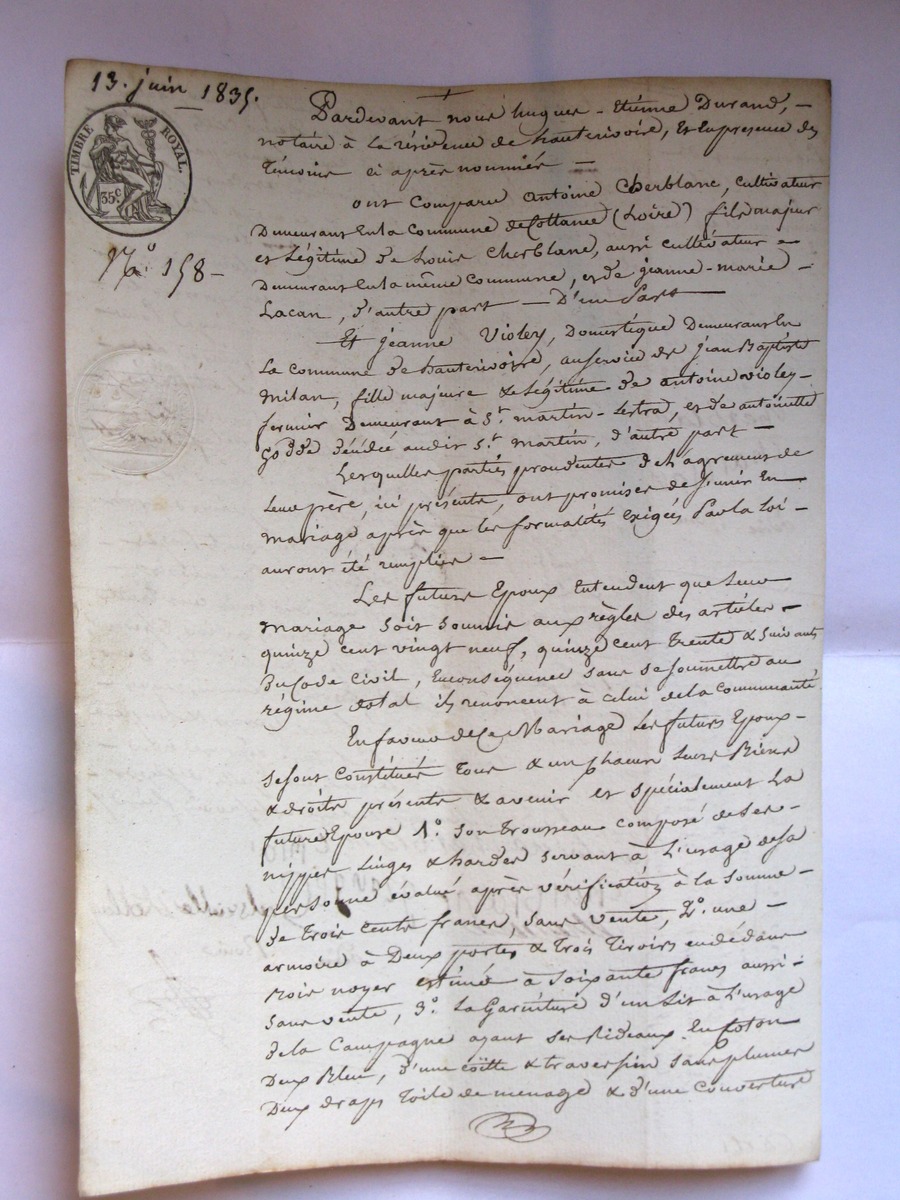 13. juin 1835.
TIMBRE ROYAL.
35c
No. 158 -
Pardevant nous hugues - Etienne Durand, -
notaire à la résidence de hauterivoire, et en présence des
Témoins ci après nommés -
ont Comparu Antoine Cherblanc, cultivateur
Demeurant en la commune de Cottance (Loire) fils majeur
et Légitime de Louis Cherblanc, aussi cultivateur -
Demeurant en la même Commune, et de jeanne-marie -
Lacan, d'autre part - D'une Part -
Et jeanne Violey, Domestique Demeurant en
La commune de hauterivoire, au service de jean Baptiste
Milan, fille majeure & Légitime de antoine violey -
fermier Demeurant à St. martin - Lestra, et de antoinette
décédée audit St. martin, d'autre part -
Lesquelles parties procédantes de l'agrément de
Leurs père, ici présents, ont promises de s'unir En
mariage après que les formalités Exigées Par la Loi -
auront été remplies -
Les futurs Epoux Entendent que Leur
mariage soit soumis aux règles des articles -
quinze cent vingt neuf, quinze cent Trente & suivants
Du Code Civil, En conséquence sans se soumettre au
régime dotal ils renoncent à celui de la communauté
En faveur de Ce Mariage Les futurs Epoux -
se sont Constitués Tous & un chacun Leurs Biens
& droits présents & avenir et spécialement La
future Epouse 1o. son Trousseau composé de ses -
nippes Linges & hardes servant à L'usage de sa
personne évalué après vérification à la somme -
de Trois Cents francs, sans vente, 2o. une -
armoire à Deux portes & Trois Tiroirs en dedans
Bois noyer estimée à soixante francs aussi -
sans vente, 3o. La Garniture d'un Lit à L'usage
de la Campagne ayant ses Rideaux En Coton
Deux Bleu, d'une coïtte & traversin sans plumes
Deux draps Toile de menage & d'une couverture